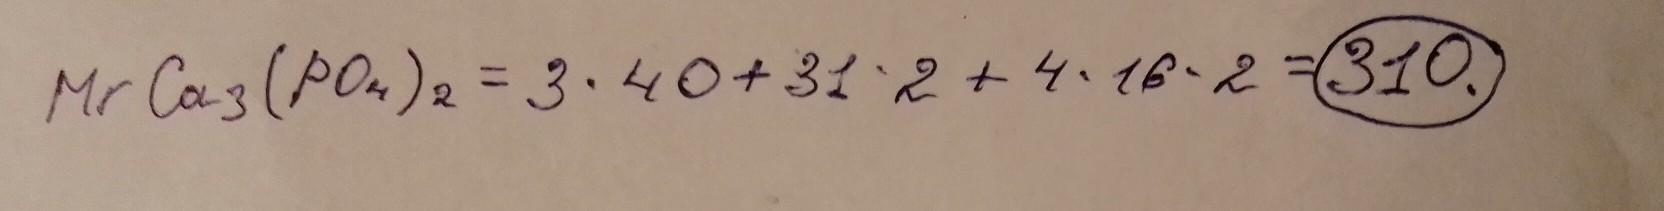 Mr Ca₃(PO₄)₂ = 3 · 40 + 31 · 2 + 4 · 16 · 2 = 310.